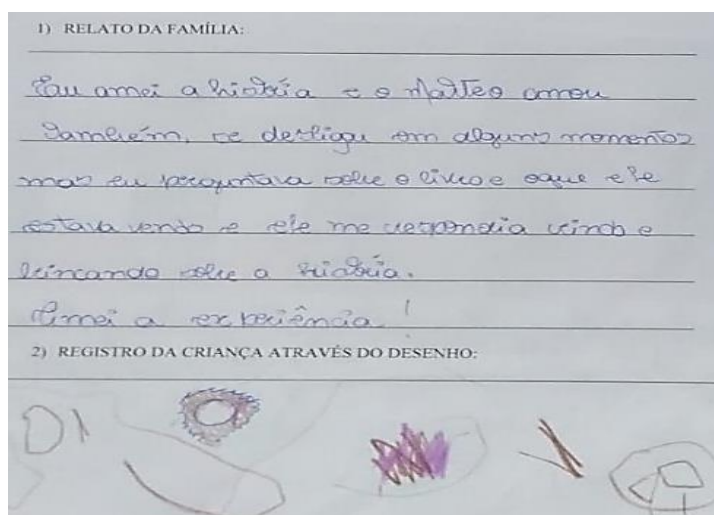 1) RELATO DA FAMÍLIA:
Eu amei a história e o Matteo amou
também, se desligu em alguns momentos
mas eu preguntava sobre o livro e oque ele
estava vendo e ele me respondia rindo e
brincando sobre a história.
Amei a experiência!
2) REGISTRO DA CRIANÇA ATRAVÉS DO DESENHO: